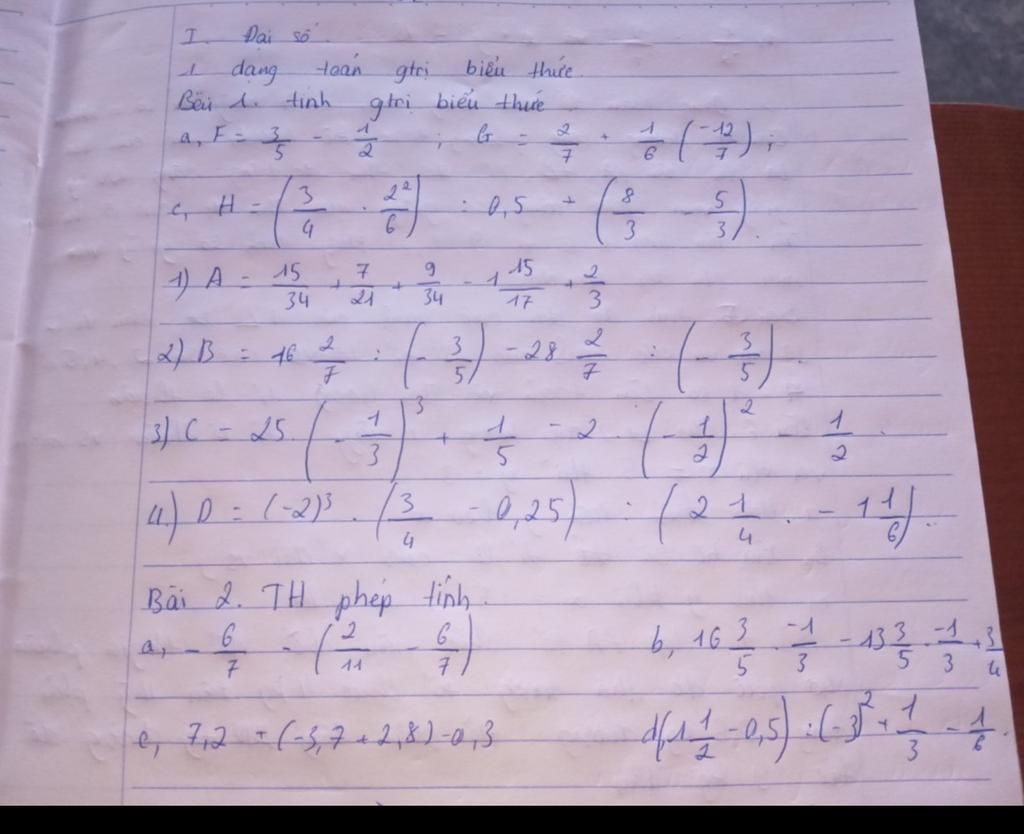 I. Đại số.
1 dạng toán gtrị biểu thức.
Bài 1. tính gtrị biểu thức
a, F = 3/5 - 1/2 ; G = 2/7 + 1/6 (-12/7);
c, H = (3/4 . 2²/6) : 0,5 + (8/3 - 5/3).
1) A = 15/34 + 7/21 + 9/34 - 1 15/17 + 2/3
2) B = 16 2/7 : (- 3/5) - 28 2/7 : (- 3/5).
3) C = 25. (- 1/3)³ + 1/5 - 2 . (- 1/2)² - 1/2.
4.) D = (-2)³ . (3/4 - 0,25) : (2 1/4 . - 1 1/6).
Bài 2. TH phép tính.
a, - 6/7 - (2/11 - 6/7) b, 16 3/5 . -1/3 - 13 3/5 . -1/3 + 3/4
c, 7,2 + (-3,7 + 2,8) - 0,3 d, (1 1/2 - 0,5) : (-3)² + 1/3 - 1/6.